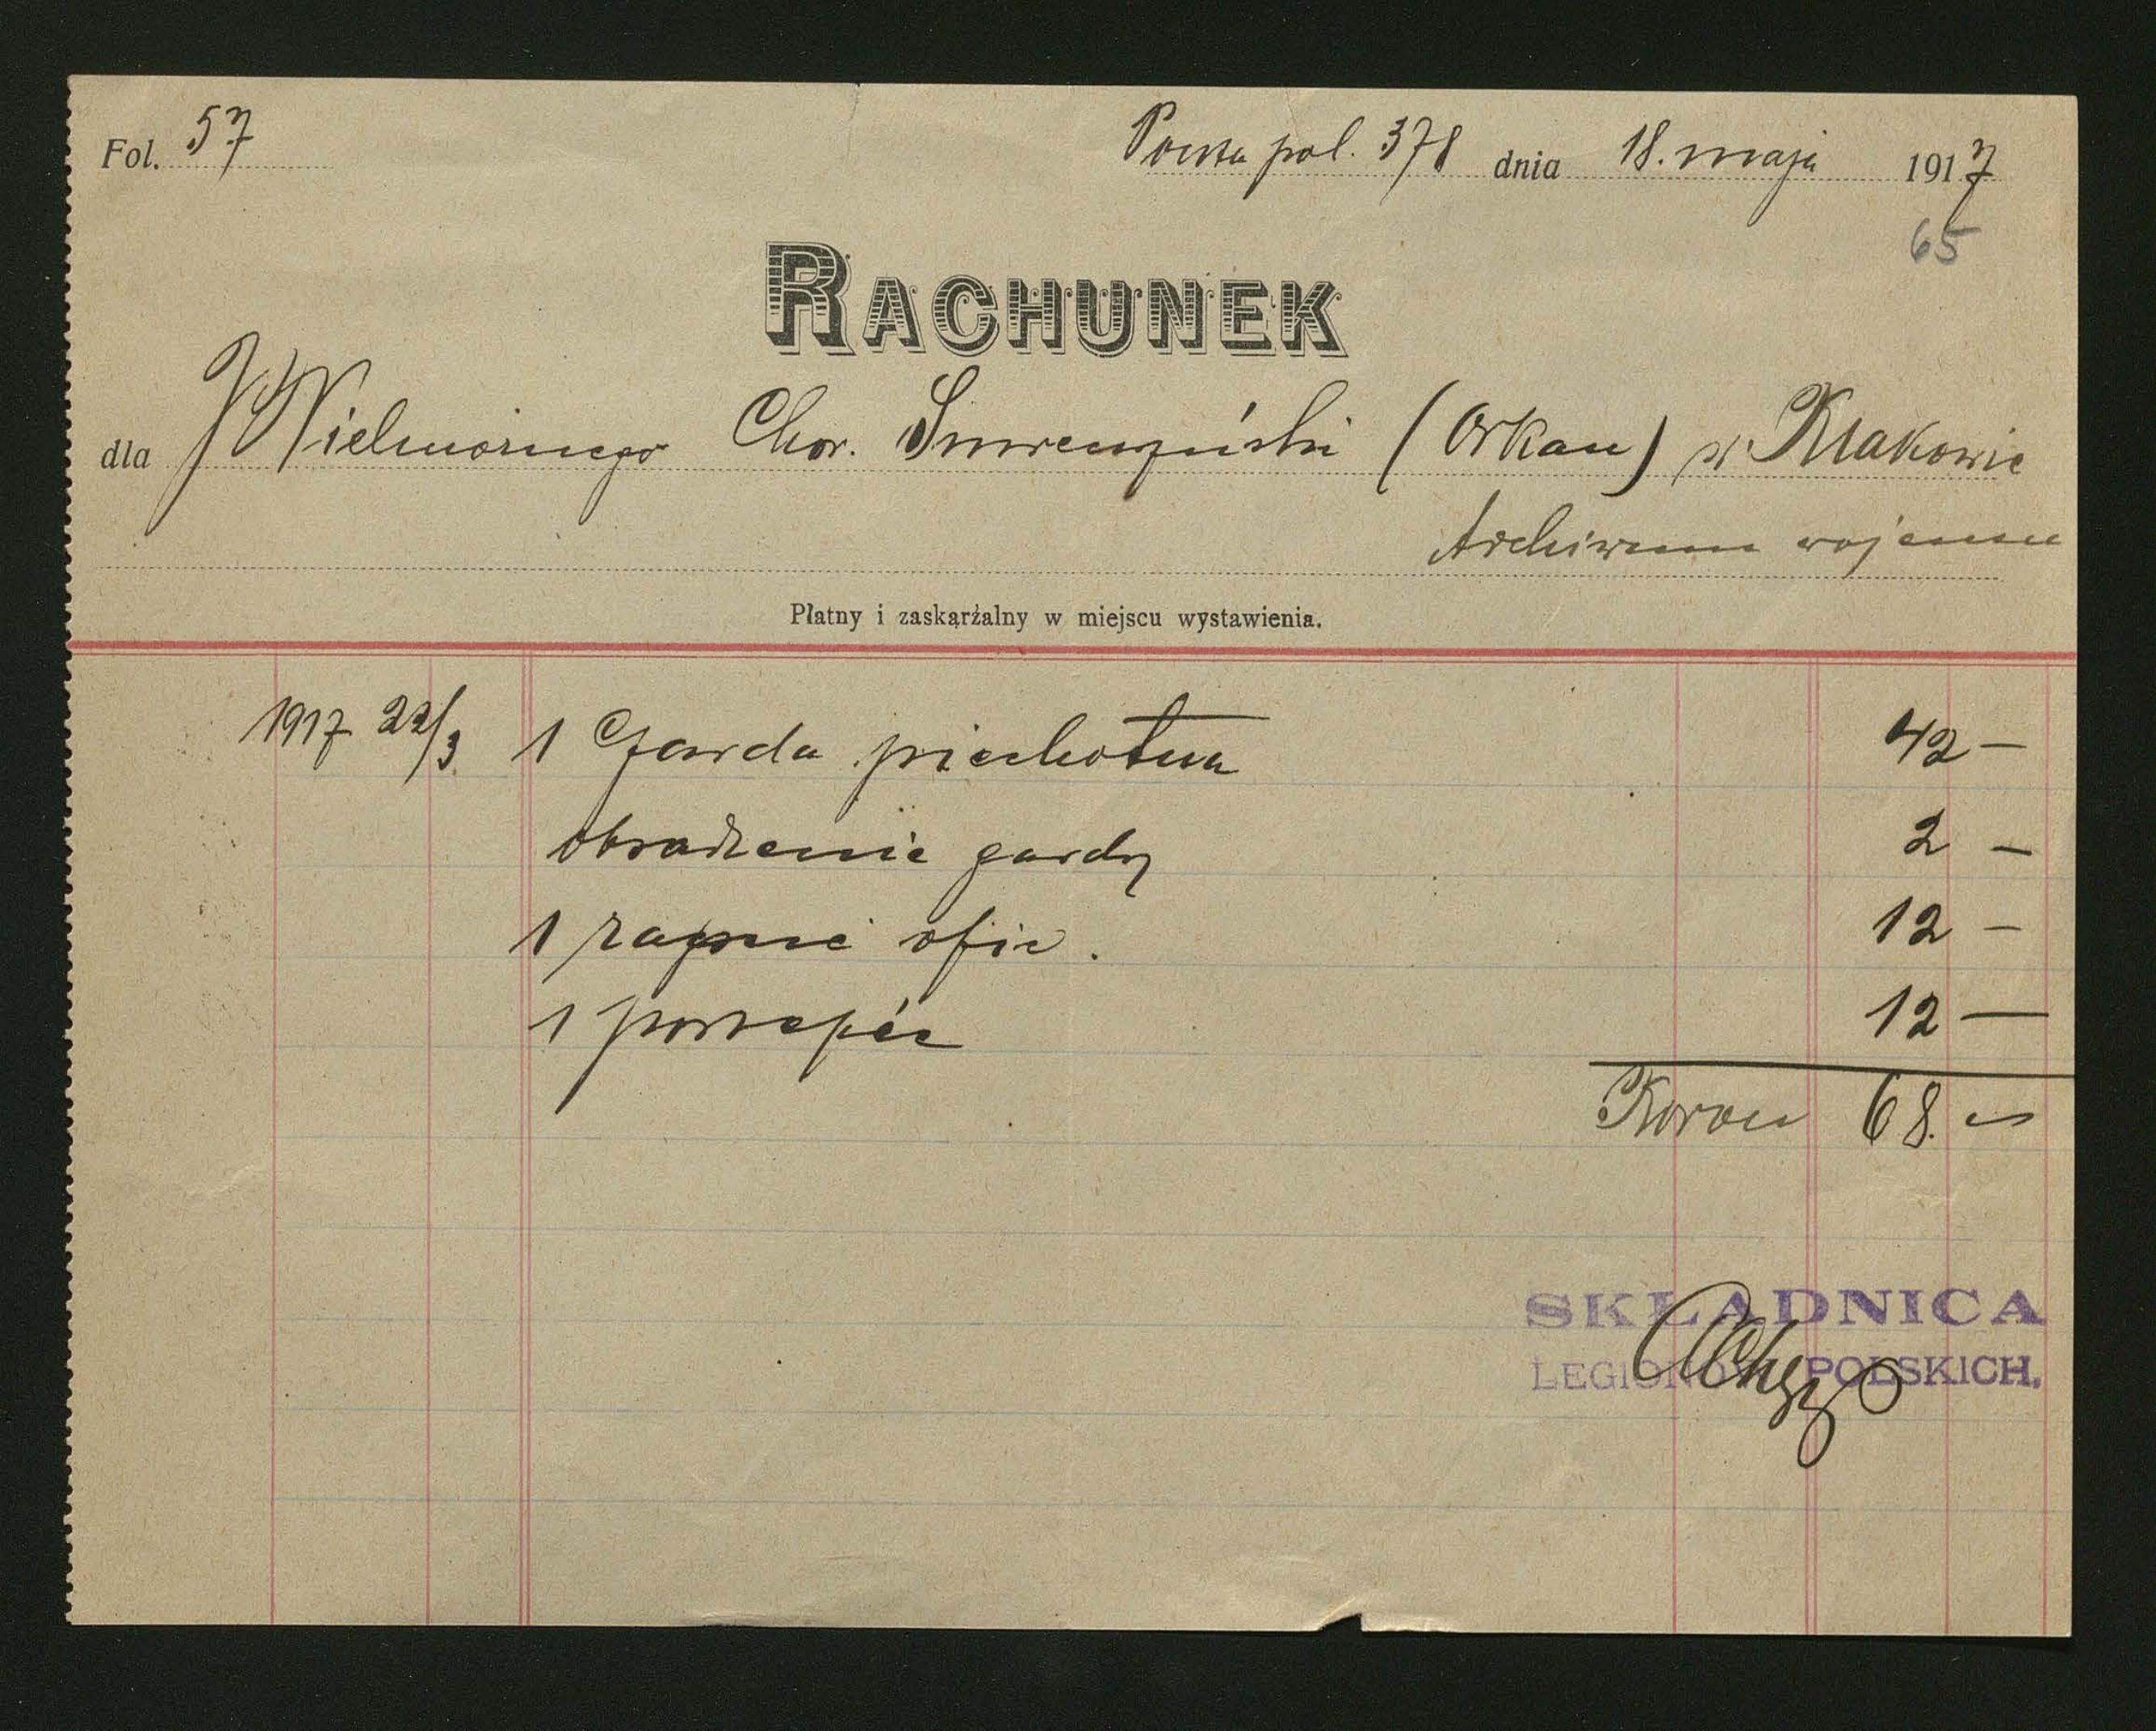 Fol. 57
Poczta pol. 378 dnia 18. maja 1917
65
RACHUNEK
dla JWielmożnego Chor. Smreczyński (Orkan) w Krakowie
Archiwum wojenne
Płatny i zaskarżalny w miejscu wystawienia.
1917 22/3 1 Garda piechotna 42 —
obsadzenie gardy 2 —
1 rapcie ofic. 12 —
1 portepée 12 —
Koron 68.—
SKŁADNICA
LEGIONÓW POLSKICH.